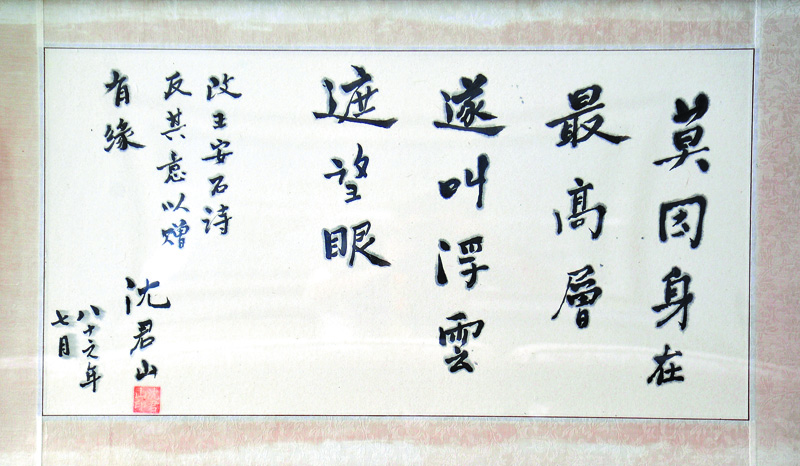 莫因身在
最高層
遂叫浮雲
遮望眼
改王安石詩
反其意以贈
有緣
沈君山
八十六年
七月